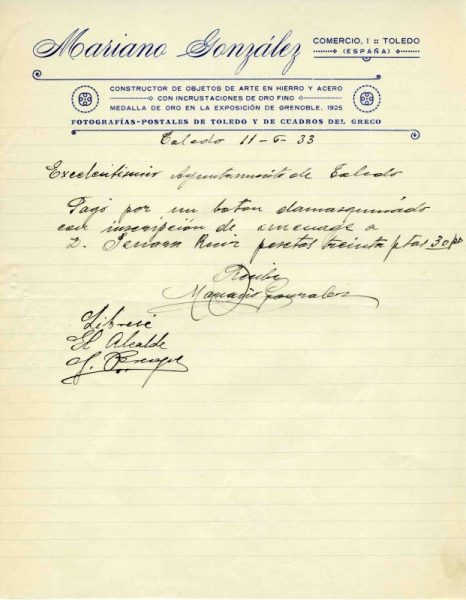 Mariano González
COMERCIO, 1 :: TOLEDO
(ESPAÑA)
CONSTRUCTOR DE OBJETOS DE ARTE EN HIERRO Y ACERO
CON INCRUSTACIONES DE ORO FINO
MEDALLA DE ORO EN LA EXPOSICIÓN DE GRENOBLE, 1925
FOTOGRAFÍAS-POSTALES DE TOLEDO Y DE CUADROS DEL GRECO
Toledo 11-6-33
Excelentisimo Ayuntamiento de Toledo
Pagó por un boton damasquinado
con inscripción de omenage a
D. pesetas treinta ptas 30
Recibi
Mariano Gonzalez
Librese
El Alcalde